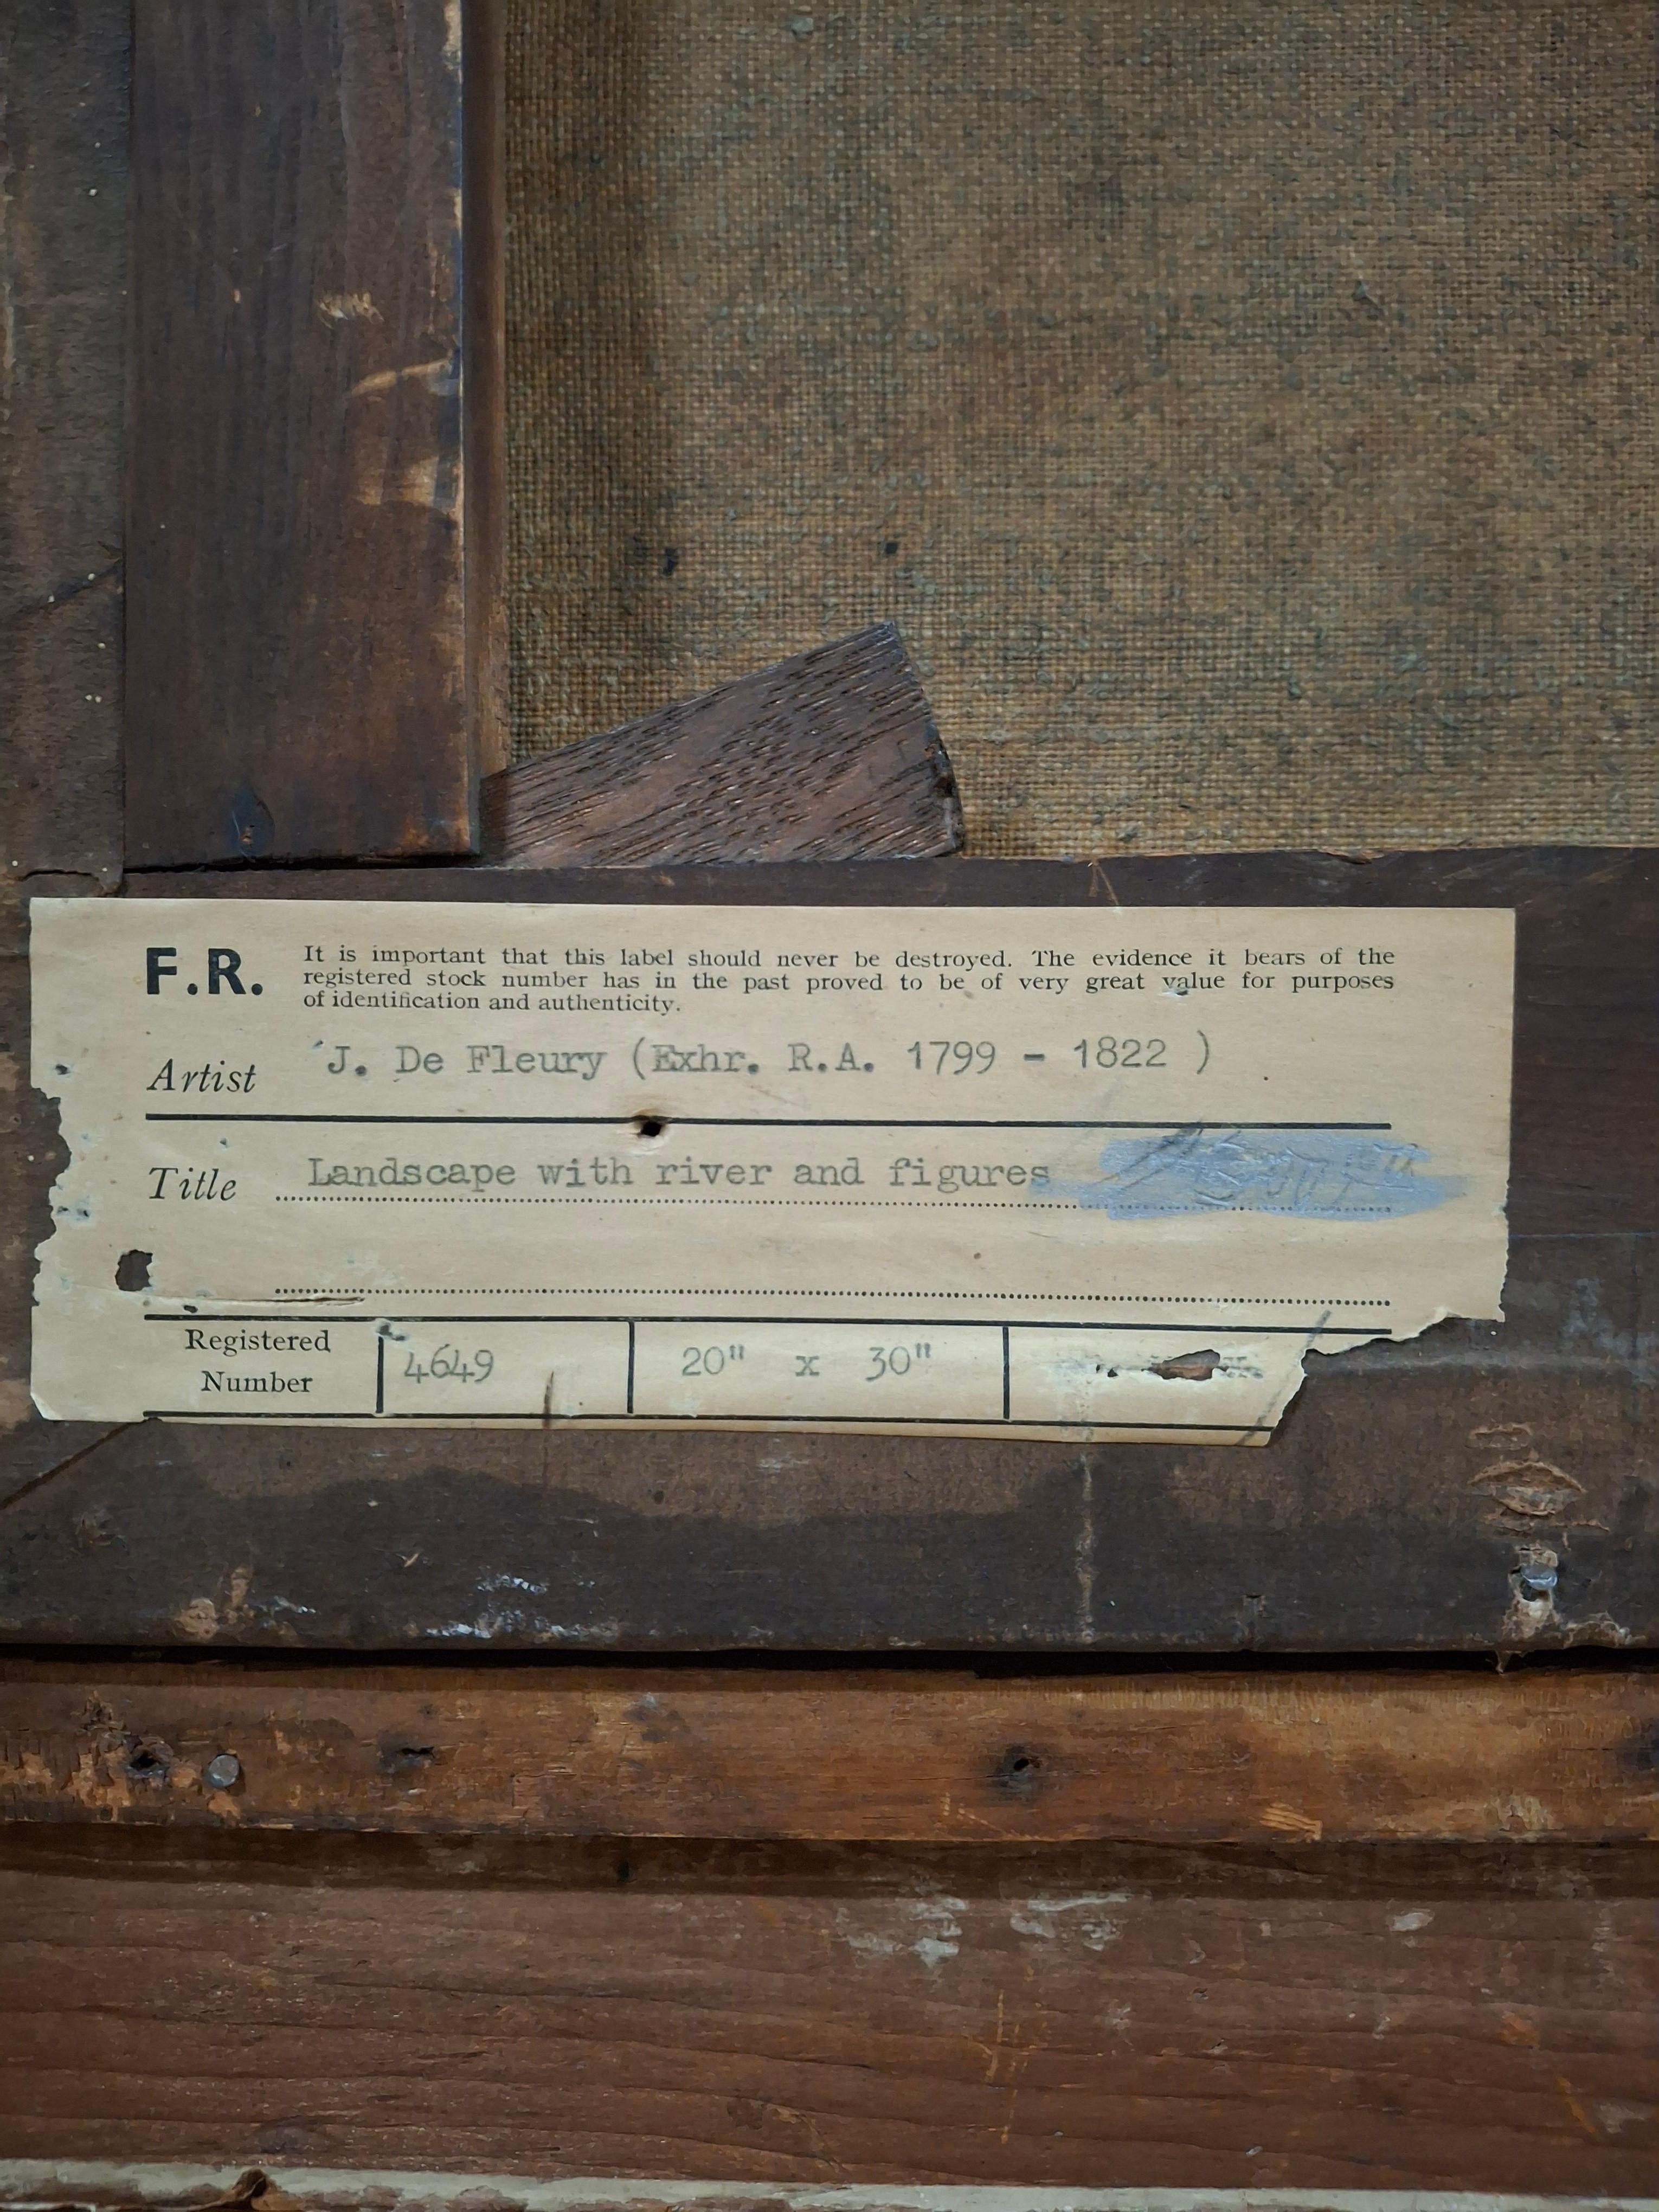 F.R.
It is important that this label should never be destroyed. The evidence it bears of the
registered stock number has in the past proved to be of very great value for purposes
of identification and authenticity.
Artist J. De Fleury (Exhr. R.A. 1799 - 1822 )
Title Landscape with river and figures
Registered
Number
4649 20" x 30"